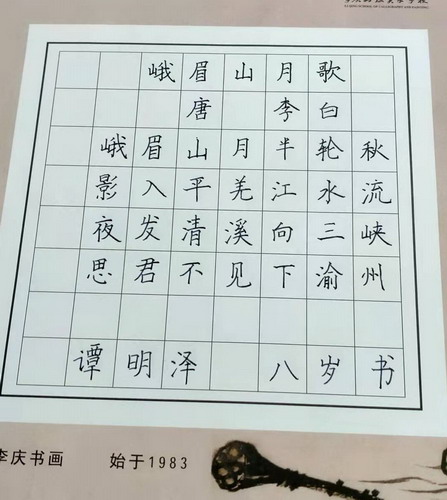 LI QING SCHOOL OF CALLIGRAPHY AND PAINTING
峨眉山月歌
唐 李白
峨眉山月半轮秋
影入平羌江水流
夜发清溪向三峡
思君不见下渝州
谭明泽 八岁书
李庆书画 始于1983